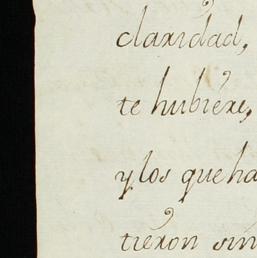 claridad,
te hubiere,
y los que ha
tieron sin